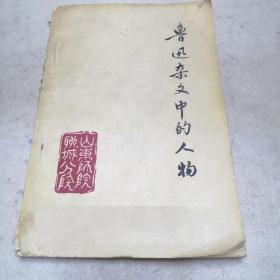 鲁迅杂文中的人物
山东师院
聊城分院